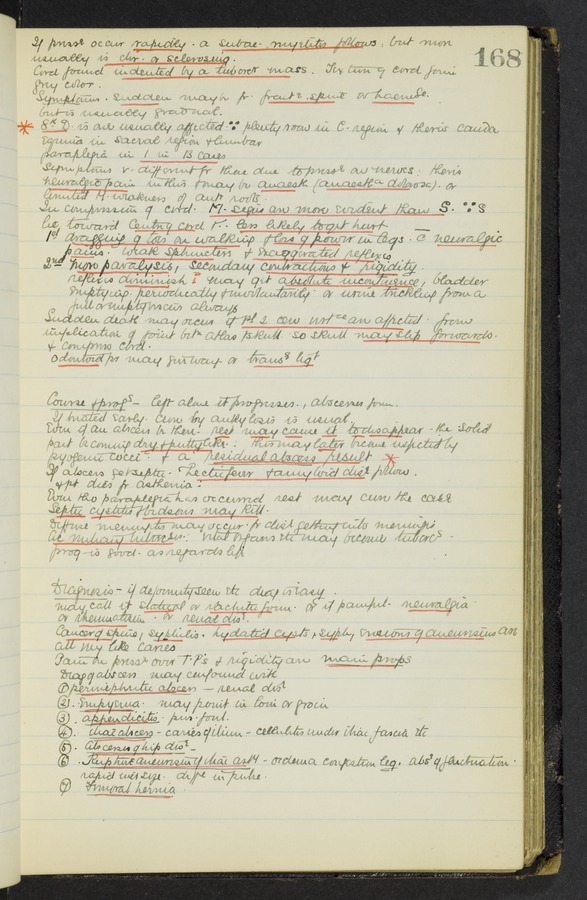 168
If pressr occur rapidly - a subac. myelitis follows, but more
usually is chr. or sclerosing.
Cord found indented by a tubercr mass.
grey color.
Symptoms. Sudden may be fr fractd spine or haemde.
but is usually gradual.
8th D. is one usually affected ∵ plenty room in C. region & there is cauda
equina in sacral region & lumbar
paraplegia in 1 in 13 cases
Symptoms v. different fr these due to pressr on nerves: there is
neuralgic pain in this & may be anaesth (anaesthia dolorosa). or
limited M. weakness of ant roots.
In compression of cord. M. signs are more evident than S. ∵ S
lie toward centre cord ∴ less likely to get hurt
1st dragging of toes on walking & loss of power in legs. c neuralgic
pains. weak sphincters & exaggerated reflexes
2nd more paralysis, secondary contractions & rigidity.
reflexes diminish & may get absolute incontinence, bladder
emptying periodically & involuntarily or urine trickling from a
full or empty viscus always
Sudden death may occur if 1st 2 cerv vertae are affected from
implication of joint betn atlas & skull so skull may slip forwards.
& compress cord.
odontoid pr may give way or transe ligt
Course & progs - left alone it progresses, abscesses form.
If treated early. Cure by ankylosis is usual,
Even if an abscess is there rest may cause it to disappear - the solid
part becoming dry & puttylike: This may later become infected by
pyogenic cocci & a residual abscess result
If abscess get septic. Hectic fever & amyloid dise follow.
& pt dies fr asthenia
Even tho paraplegia has occurred rest may cure the case
Septic cystitis & bedsores may kill.
Diffuse meningitis may occur fr dise getting into meninges
Ac miliary tubercsis. vital organs etc may become tubercs.
prog - is good as regards life
Diagnosis - if deformity seen etc diag is easy.
may call it statical or rachitic form. or if painful - neuralgia
or rheumatism - or renal dise.
Cancer of spine, syphilis, hydatid cysts, & erosions of aneurisms are
all like caries
Pain on pressr over T.P's & rigidity are main props
Diag of abscess may confound with
① perinephritic abscess - renal dise
② Empyema. may point in loin or groin
③ appendicitis pus foul.
④ iliac abscess - caries of ilium - cellulitis under iliac fascia etc
⑤ Abscess of hip dise -
⑥ Rupture aneurism of iliac arty - oedema congestion leg. abse of fluctuation.
rapid incr size. diffe in pulse.
⑦ Femoral hernia.